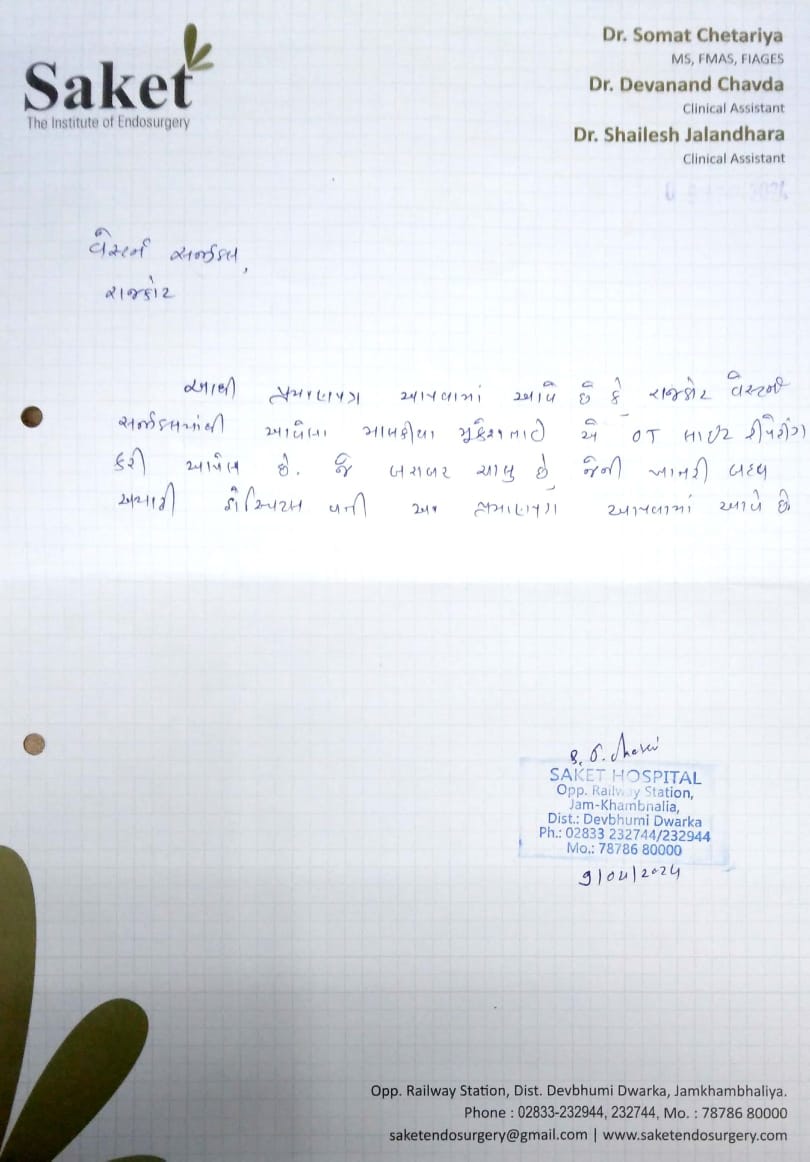 Saket
The Institute of Endosurgery
Dr. Somat Chetariya
MS, FMAS, FIAGES
Dr. Devanand Chavda
Clinical Assistant
Dr. Shailesh Jalandhara
Clinical Assistant
વેસ્ટર્ન સર્જીકલ,
રાજકોટ
આથી પ્રમાણપત્ર આપવામાં આવે છે કે રાજકોટ વેસ્ટર્ન
સર્જીકલમાંથી આવેલા મુકેશભાઈ એ OT લાઈટ રીપેરીંગ
કરી આપેલ છે. જે બરાબર ચાલુ છે જેની ખાતરી બદલ
અમારી હોસ્પિટલ વતી આ પ્રમાણપત્ર આપવામાં આવે છે.
SAKET HOSPITAL
Opp. Railway Station,
Jam-Khambhalia,
Dist.: Devbhumi Dwarka
Ph.: 02833 232744/232944
Mo.: 78786 80000
9/04/2024
Opp. Railway Station, Dist. Devbhumi Dwarka, Jamkhambhaliya.
Phone : 02833-232944, 232744, Mo. : 78786 80000
saketendosurgery@gmail.com | www.saketendosurgery.com